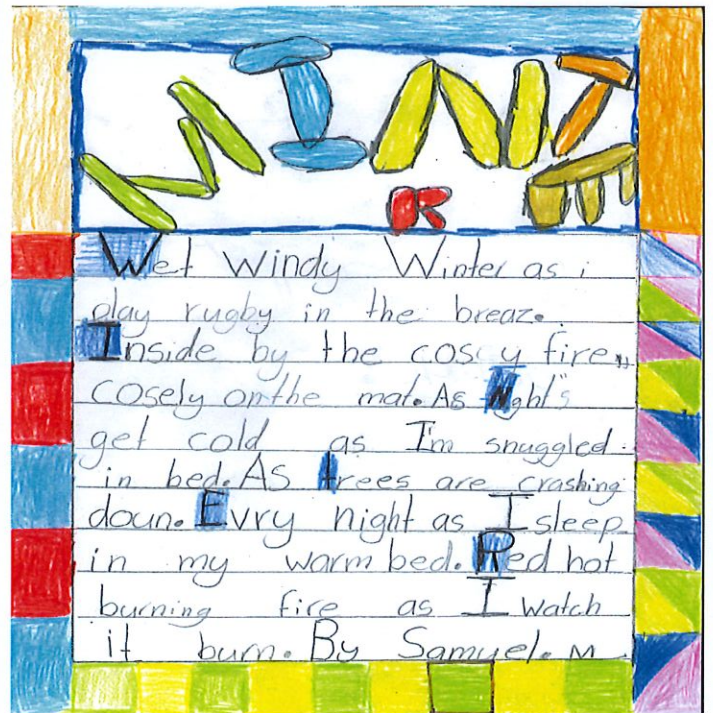 WINTER
Wet Windy Winter as i
play rugby in the breaz.
Inside by the coscy fire,,
cosely on the mat. As Night's
get cold as I'm snuggled
in bed. As trees are crashing
doun. Evry night as I sleep
in my warm bed. Red hot
burning fire as I watch
it burn. By Samuel. M